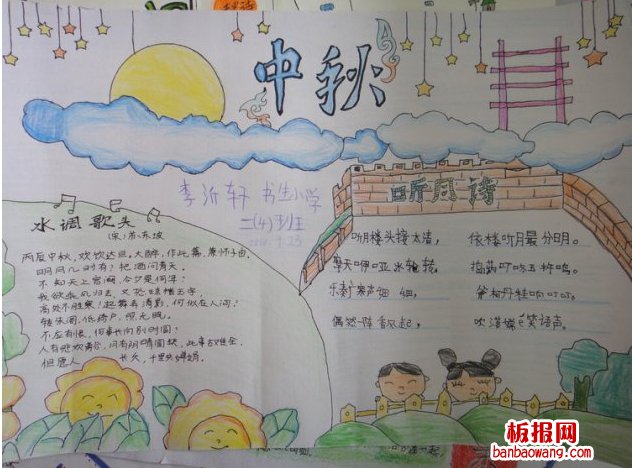 中秋
李沂轩 书生小学
二(4)班
水调歌头
(宋)苏东坡
丙辰中秋,欢饮达旦,大醉,作此篇,兼怀子由。
明月几时有?把酒问青天。
不知天上宫阙,今夕是何年?
我欲乘风归去,又恐琼楼玉宇,
高处不胜寒!起舞弄清影,何似在人间?
转朱阁,低绮户,照无眠。
不应有恨,何事长向别时圆?
人有悲欢离合,月有阴晴圆缺,此事古难全。
但愿人长久,千里共婵娟。
听月诗
听月楼头接太清,依楼听月最分明。
摩天咿哑冰轮转,捣药叮咚玉杵鸣。
乐奏广寒声细细,斧柯丹桂响叮叮。
偶然一阵香风起,吹落嫦娥笑语声。
板报网
banbaowang.com